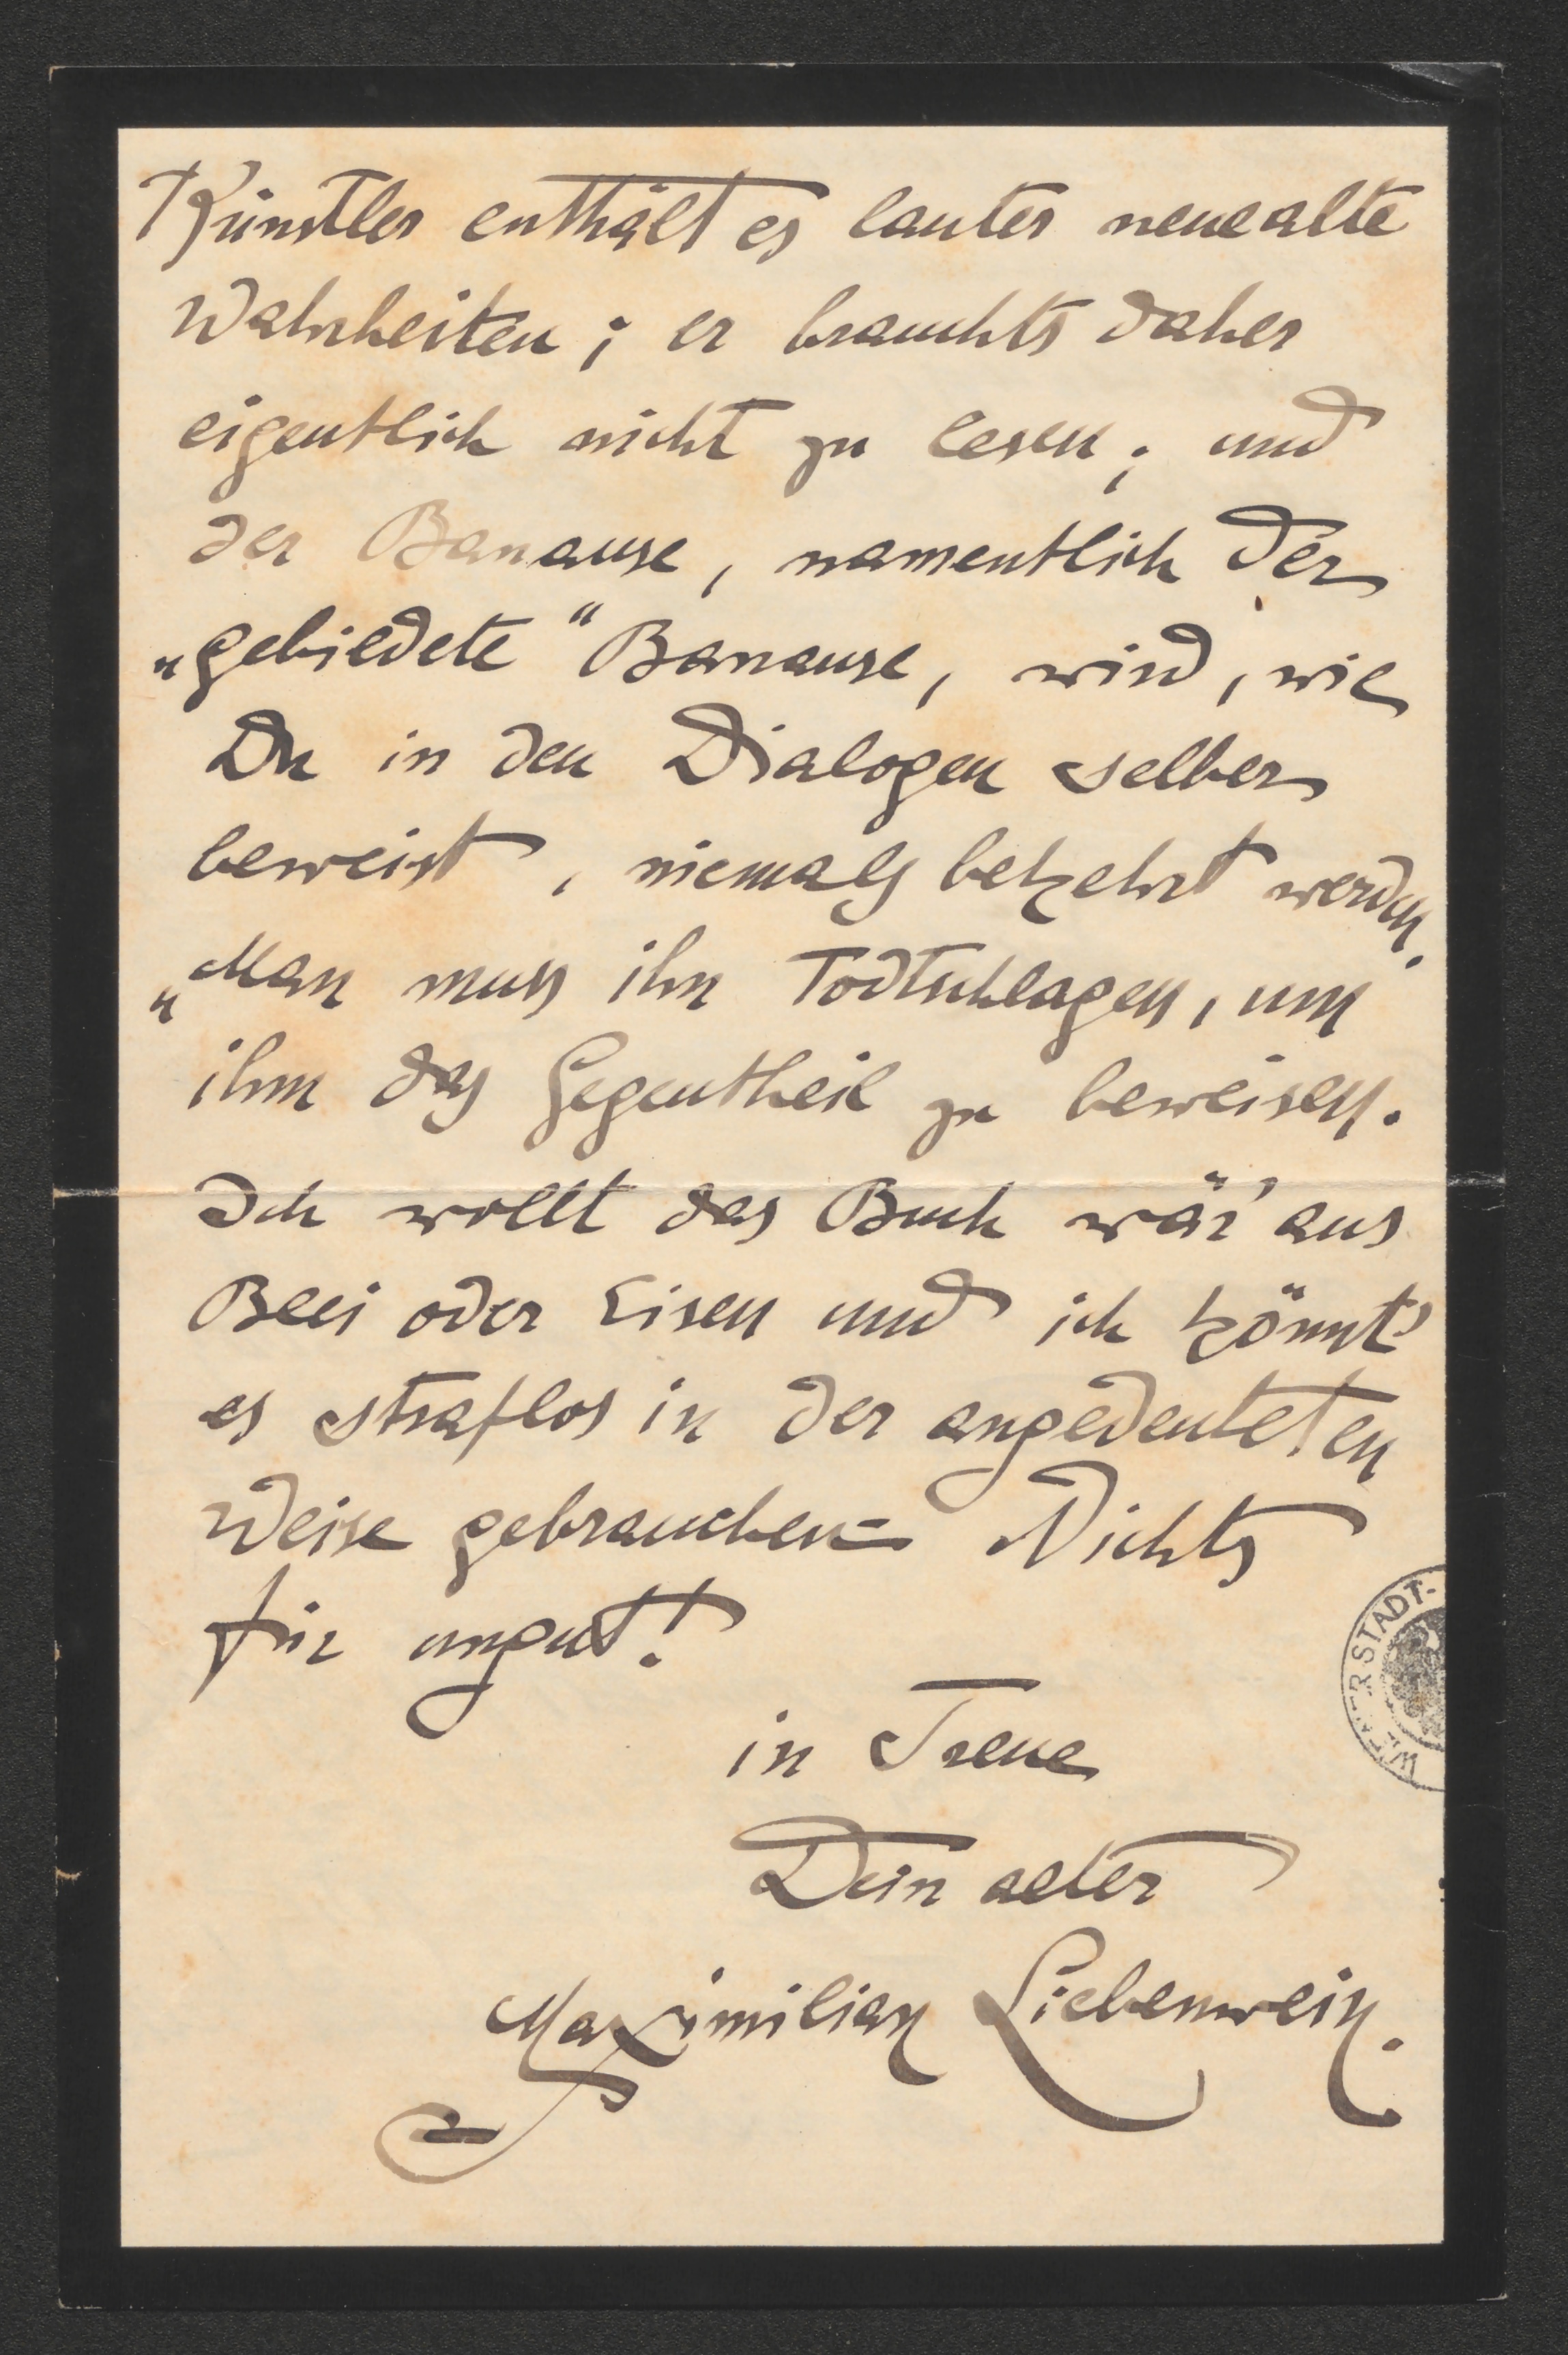 Künstler enthält es lauter neue alte
Wahrheiten; er brauchts daher
eigentlich nicht zu lesen; und
der Banause, namentlich der
„gebildete“ Banause, wird, wie
Du in den Dialogen selber
beweist, niemals bekehrt werden.
„Man muss ihn todtschlagen, um
ihm das Gegentheil zu beweisen.
Ich wollt das Buch wär' aus
Blei oder Eisen und ich könnt'
es straflos in der angedeuteten
Weise gebrauchen – Nichts
für ungut!
in Treue
Dein alter
Maximilian Liebenwein.
WIENER STADT-